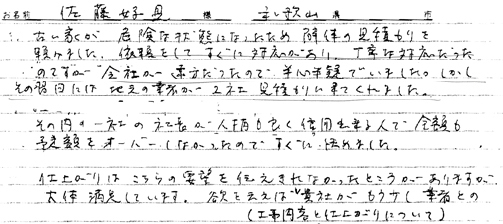 お名前 佐藤好恵 様 和歌山県 市
古い家が 危険な状態になったため 解体の見積もりを
頼みました。依頼をして すぐに対応があり、丁寧な対応だった
のですが 会社が 東京だったので 半信半疑でいました。しかし
その翌日には 地元の業者が 2社 見積もりに来てくれました。
その内の一社の 社長が 人柄も良く 信用出来る人で 金額も
予定額を オーバーしなかったので すぐに 決めました。
仕上がりは こちらの要望を 伝えきれなかったところがありますが
大体 満足しています。欲を言えば 貴社が もう少し 業者との
(工事内容と仕上がりについて)